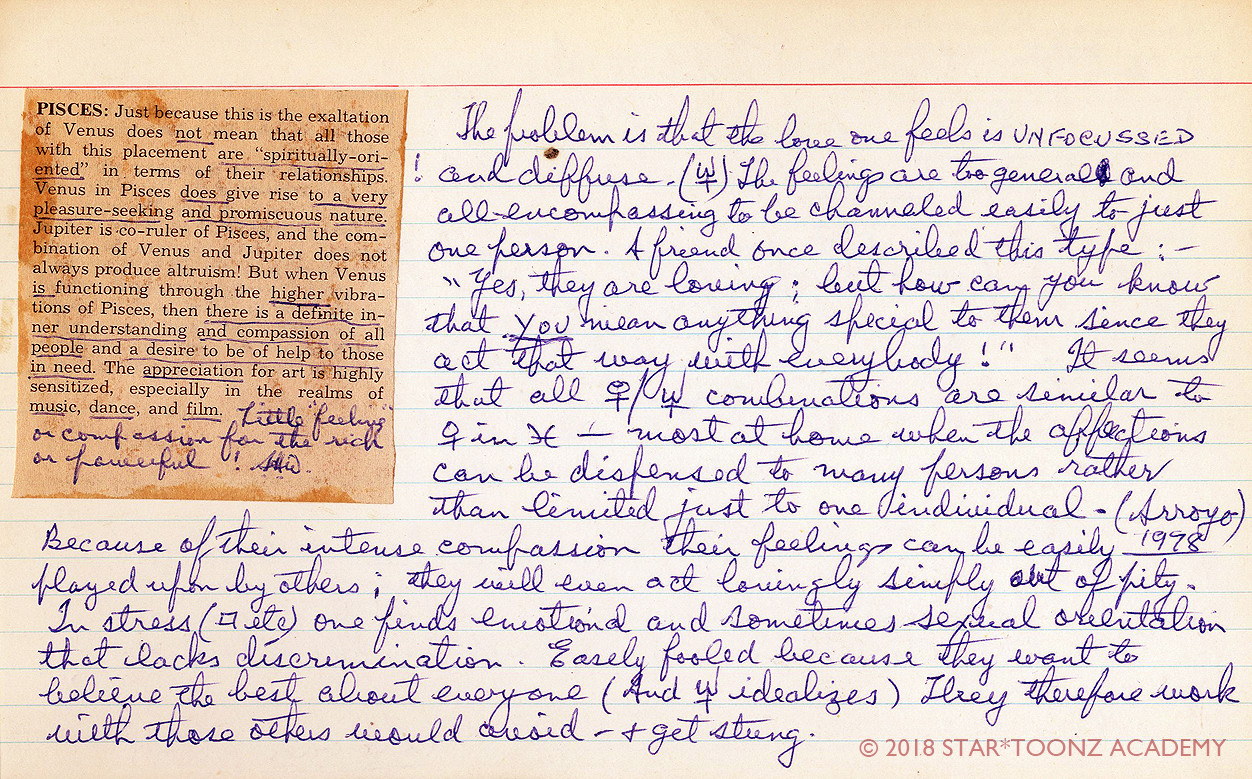 PISCES: Just because this is the exaltation
of Venus does not mean that all those
with this placement are "spiritually-ori-
ented" in terms of their relationships.
Venus in Pisces does give rise to a very
pleasure-seeking and promiscuous nature.
Jupiter is co-ruler of Pisces, and the com-
bination of Venus and Jupiter does not
always produce altruism! But when Venus
is functioning through the higher vibra-
tions of Pisces, then there is a definite in-
ner understanding and compassion of all
people and a desire to be of help to those
in need. The appreciation for art is highly
sensitized, especially in the realms of
music, dance, and film. Little "feeling"
or compassion for the rich
or powerful !
The problem is that the love one feels is UNFOCUSSED
! and diffuse. (♆) The feelings are too general and
all-encompassing to be channeled easily to just
one person. A friend once described this type : -
"Yes, they are loving ; but how can you know
that you mean anything special to them since they
act that way with everybody !" It seems
that all ♀/♆ combinations are similar to
♀ in ♓ - most at home when the affections
can be dispensed to many persons rather
than limited just to one individual - (Arroyo)
1978
Because of their intense compassion their feelings can be easily
played upon by others ; they will even act lovingly simply out of pity.
In stress (□ etc) one finds emotional and sometimes sexual orientation
that lacks discrimination. Easily fooled because they want to
believe the best about everyone (And ♆ idealizes) They therefore work
with those others would avoid - + get stung.
© 2018 STAR*TOONZ ACADEMY